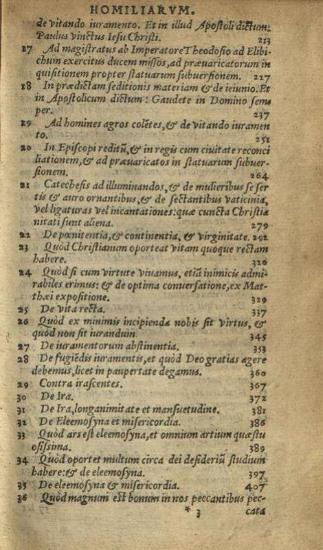 HOMILIARVM.
de vitando iuramento. Et in illud Apostoli dictum:
Paulus vinctus Iesu Christi. 213
17 Ad magistratus ab Imperatore Theodosio ad Elibi-
chum exercitus ducem missos, ad præuaricatorum in
quisitionem propter statuarum subuersionem. 227
18 In prædictam seditionis materiam & de ieiunio. Et
in Apostolicum dictum: Gaudete in Domino sem
per. 237
19 Ad homines agros colẽtes, & de vitando iuramen
to. 251
20 In Episcopi reditũ, & in regis cum ciuitate reconci
liationem, & ad præuaricatos in statuarum subuer-
sionem. 264
21 Catechesis ad illuminandos, & de mulieribus se ser
tis & auro ornantibus, & de sectantibus vaticinia,
vel ligaturas vel incantationes: quæ cuncta Christia
nitati sunt aliena. 279
22 De pœnitentia, & continentia, & virginitate. 292
23 Quòd Christianum oporteat vitam quoque rectam
habere. 320
24 Quòd si cum virtute viuamus, etiã inimicis admi-
rabiles erimus: & de optima conuersatione, ex Mat-
thæi expositione. 329
25 De vita recta. 337
26 Quòd ex minimis incipienda nobis sit virtus, &
quòd non sit iurandum. 345
27 De iuramentorum abstinentia. 353
28 De fugiẽdis iuramentis, et quòd Deo gratias agere
debemus, licet in paupertate degamus. 360
29 Contra irascentes. 367
30 De Ira. 372
31 De Ira, longanimitate et mansuetudine. 381
32 De Eleemosyna et misericordia. 386
33 Quòd ars est eleemosyna, et omnium artium quæstu
osissima. 389
34 Quòd oportet multum circa dei desideriũ studium
habere: & de eleemosyna. 397
35 De eleemosyna & misericordia. 407
36 Quòd magnum est bonum in nos peccantibus pec-
* 3 cata